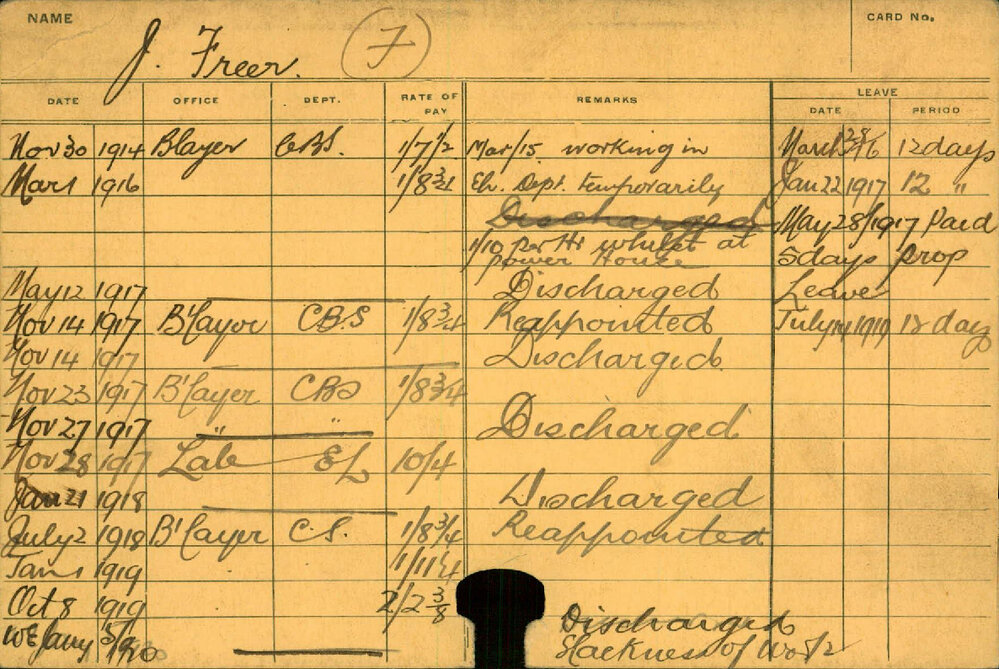 NAME J. Freer. (F) CARD No.
DATE OFFICE DEPT. RATE OF PAY REMARKS LEAVE DATE PERIOD
Nov 30 1914 Blayer CBS. 1/7 1/2 Mar/15. working in March 28/16 12 days
Mar 1 1916 1/8 3/4 El. Dept. temporarily Jan 22 1917 12 "
Discharged May 28/1917 Paid
1/10 per Hr whilst at 5 days prop
power House
May 12 1917 Discharged Leave
Nov 14 1917 B'layer C.B.S 1/8 3/4 Reappointed July 1919 12 day
Nov 14 1917 Discharged
Nov 23 1917 B'layer CBS 1/8 3/4
Nov 27 1917 " " Discharged
Nov 28 1917 Lab EL 10/4
Jan 21 1918 Discharged
July 2 1918 B'layer C.S. 1/8 3/4 Reappointed
Jan 1 1919 1/11 1/4
Oct 8 1919 2/2 3/8
WE Jany 5/1920 Discharged
Slackness of Work